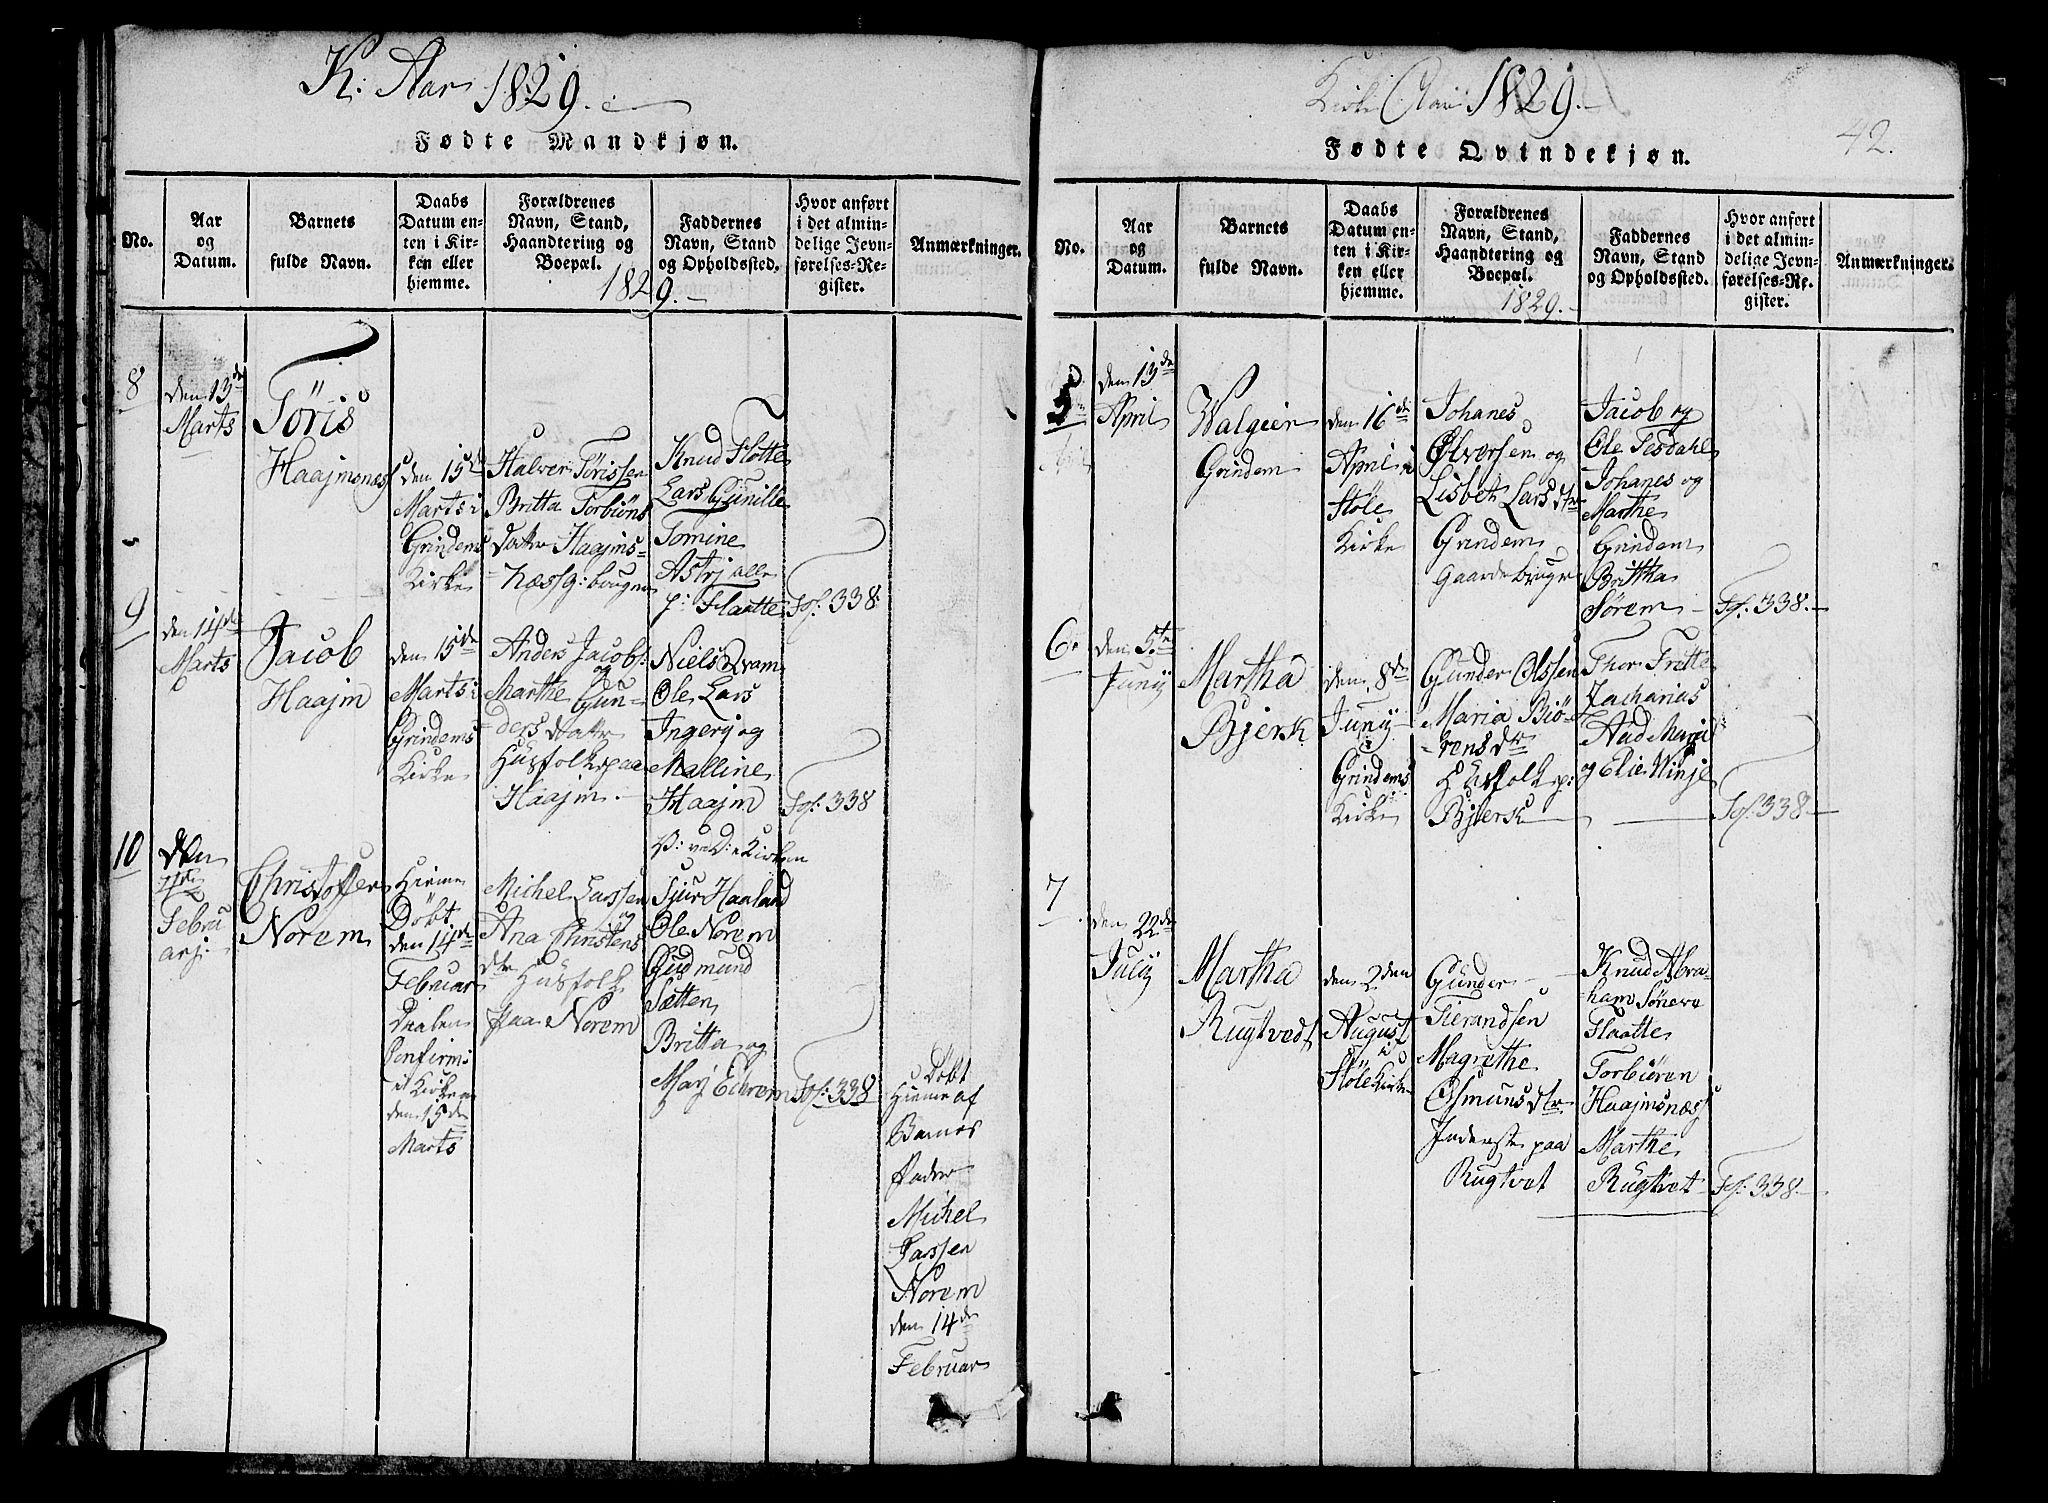 K: Aar 1829.
Fødte Mandkjøn.
No.
Aar
og
Datum.
Barnets
fulde Navn.
Daabs
Datum en-
ten i Kir-
ken eller
hjemme.
Forældrenes
Navn, Stand,
Haandtering og
Boepæl.
Faddernes
Navn, Stand
og Opholdssted.
Hvor anført
i det almin-
delige Jevn-
førelses-Re-
gister.
Anmærkninger.
1829.
8
den 13de
Marts
Töris
Haajmsnæs
den 15de
Marts i
Grindems
Kirke
Halver Törissen
Britta Torbiöns
Datr Haajms-
næs g: bruger
Knud Flotte
Lars Gunille
Tomine
Astrj alle
p: Flaatte
Fol: 338.
9
den 14de
Marts
Jacob
Haajm
den 15de
Marts i
Grindems
Kirke
Anders Jacobs:
og
Marthe Gun-
ders Datr
Husfolk paa
Haajm.
Niels Qvam
Ole Lars
Ingerj og
Malline
Haajm
Fol: 338
10
Den
Febru
arj:
Christoffer
Norem
Hieme
Döbt
den 14de
Februar
Daaben
Confirm:
i Kirken
den 15de
Marts
Michel Larssen
og
Ana Christens
dtr Husfolk
paa Norem
P: ved D: i Kirken
Sjur Haaland
Ole Norem
Gudmund
Sætten
Britta og
Marj Echrem
Fol: 338
Döbt
Hieme af
Barnes
Fader
Michel
Larssen
Norem
den 14de
Februar
Kirke Aar 1829.
42.
Fødte Qvindekjøn.
No.
Aar
og
Datum.
Barnets
fulde Navn.
Daabs
Datum en-
ten i Kir-
ken eller
hjemme.
Forældrenes
Navn, Stand,
Haandtering og
Boepæl.
Faddernes
Navn, Stand
og Opholdssted.
Hvor anført
i det almin-
delige Jevn-
førelses-Re-
gister.
Anmærkninger.
1829.
5
den 13de
April
Walgier
Grindem
den 16de
April i
Stöle
Kirke
Johanes
Ølversen og
Lisbet Lars dtr
Grindem
Gaardebruger
Jacob og
Ole Tesdahl
Johanes og
Marthe
Grindem
Brittha
Sørem
Fol: 338.
6.
den 5te
Junij
Martha
Bjerk
den 8de
Junij
i
Grindems
Kirke
Gunder Olssen
Maria Biö-
rens dtr
Husfolk p:
Bjerk
Thor Fritte
Zacharias
Aad Mari
og Elie Vinje
Fol: 338
7
den 22de
Julij
Martha
Rugtvedt
den 2den
August
i
Stöle Kirke
Gunder
Tierandsen
Magrethe
Osmunsdtr
Inderste paa
Rugtvet
Knud Abra-
ham Söneva
Flaatte
Torbiören
Haajmsnæs
Marthe
Rugtvet
Fol: 338.